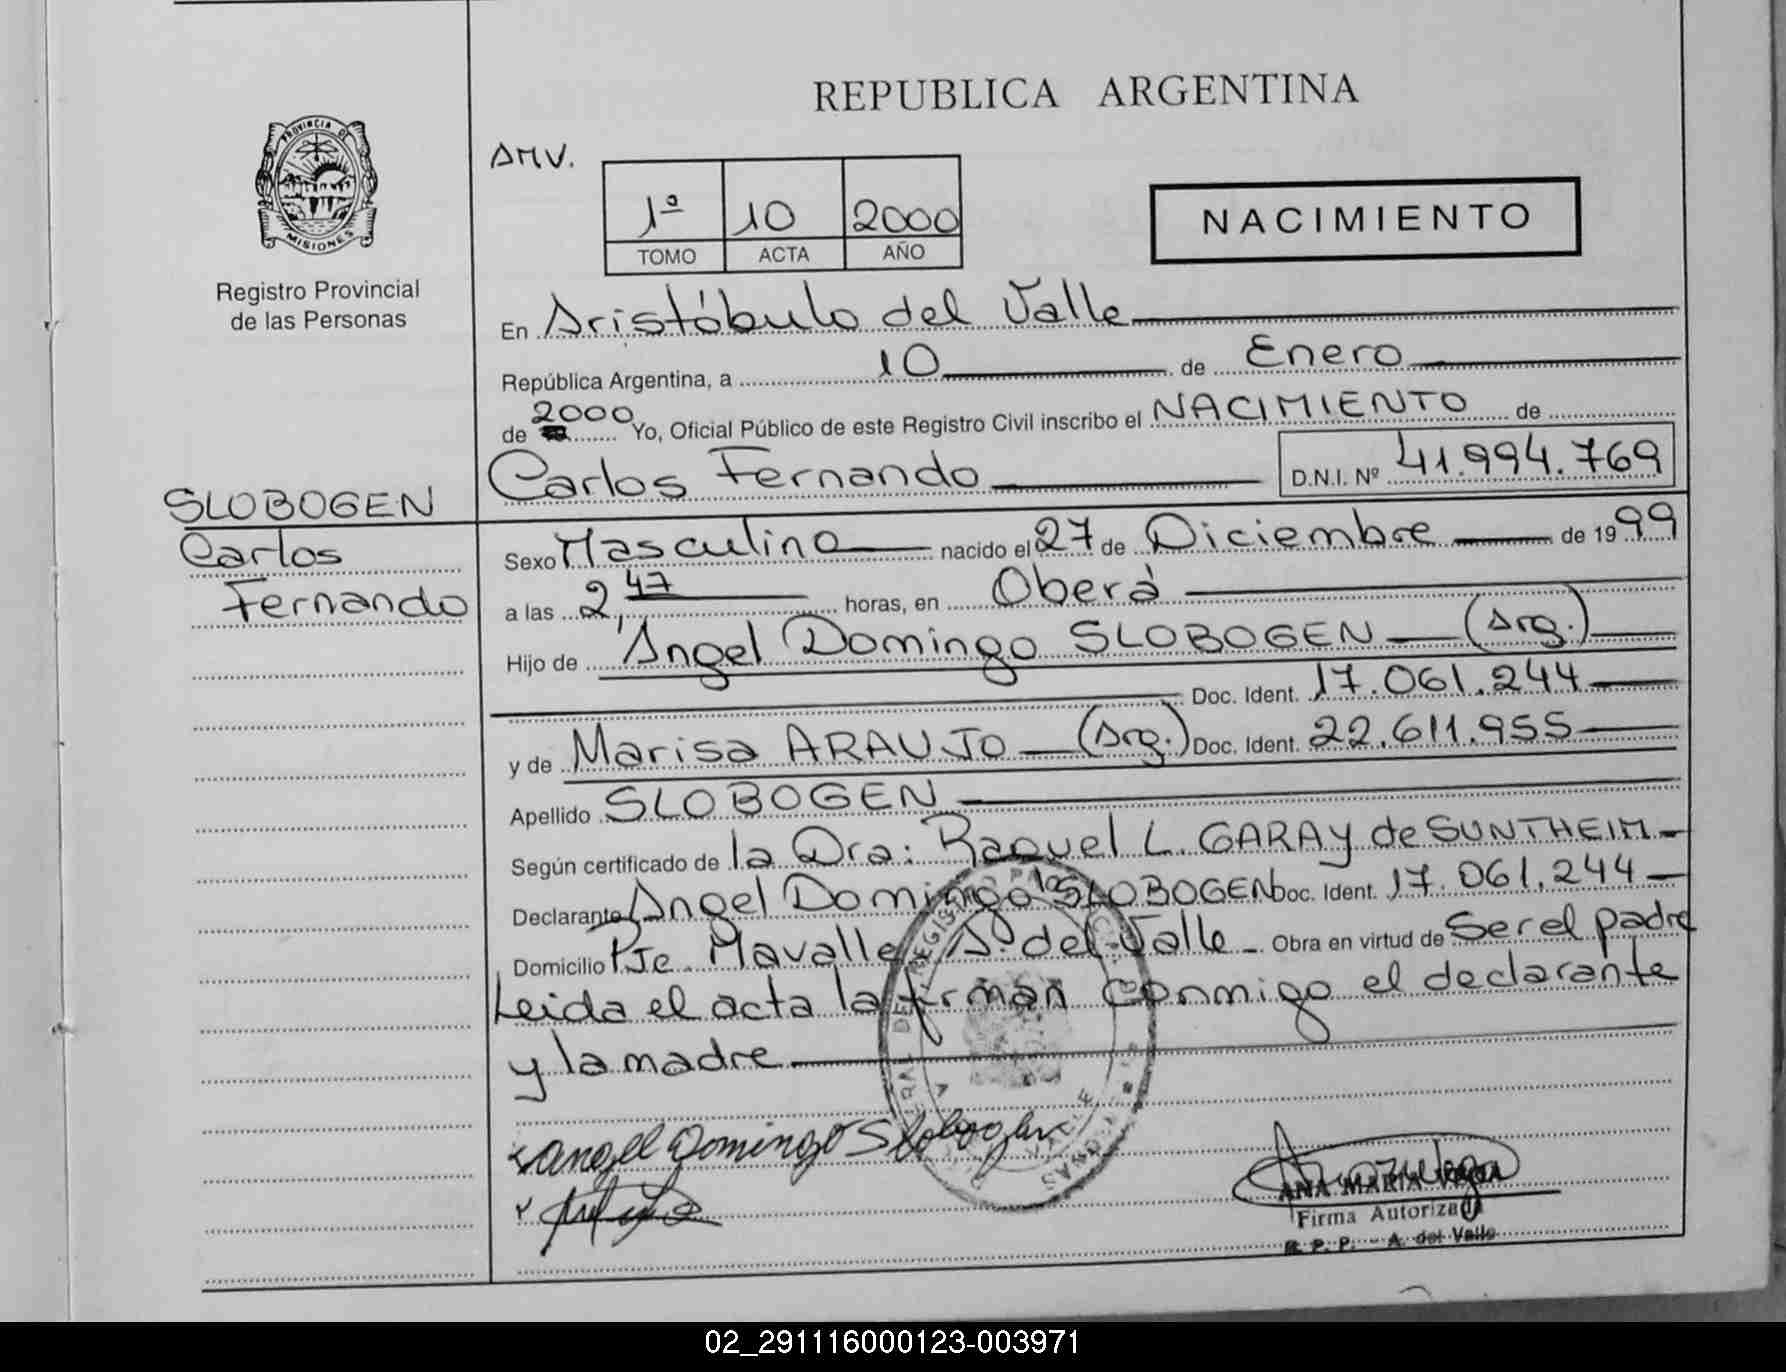 REPUBLICA ARGENTINA
PROVINCIA DE
MISIONES
Registro Provincial
de las Personas
AMV.
1º 10 2000
TOMO ACTA AÑO
NACIMIENTO
En Aristóbulo del Valle
República Argentina, a 10 de Enero
de 2000 Yo, Oficial Público de este Registro Civil inscribo el NACIMIENTO de
Carlos Fernando D.N.I. Nº 41.994.769
SLOBOGEN
Carlos
Fernando
Sexo Masculino nacido el 27 de Diciembre de 1999
a las 2,47 horas, en Oberá
Hijo de Angel Domingo SLOBOGEN (Arg.)
Doc. Ident. 17.061.244
y de Marisa ARAUJO (Arg.) Doc. Ident. 22.611.955
Apellido SLOBOGEN
Según certificado de la Dra: Raquel L. GARAY de SUNTHEIM
Declarante Angel Domingo SLOBOGEN Doc. Ident. 17.061.244
Domicilio Pje. Mavalle A. del Valle - Obra en virtud de Ser el padre
Leida el acta la firman conmigo el declarante
y la madre
Angel Domingo Slobogen
ANA MARIA
Firma Autorizada
R. P. P. - A. del Valle
02_291116000123-003971